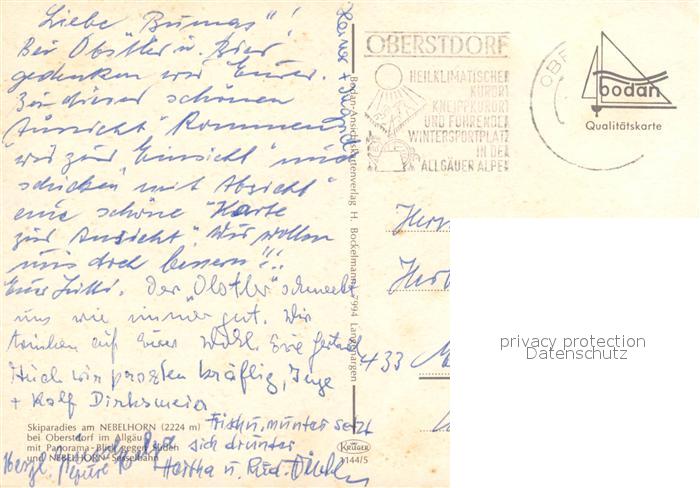 Liebe "Bumas"!
Bei Obstler u. Bier
gedenken wir Eurer.
Zu dieser schönen
"Aussicht" kommen
wir zur "Einsicht" und
schicken "mit Absicht"
eine schöne "Karte
zur Ansicht". Wir wollen
uns doch bessern!!
Eure Jutti. Der Obstler schmeckt
uns wie immer gut. Wir
trinken auf Euer Wohl. Eure
Auch wir prosten kräftig, Inge
+ Rolf Dirksmeier
Frisch u. munter setzt
sich drunter
Hertha u. Rud.
Herzl.
Skiparadies am NEBELHORN (2224 m)
bei Oberstdorf im Allgäu
mit Panorama-Blick gegen Süden
und NEBELHORN-Sesselbahn
Bodan-Ansichtskartenverlag H. Bockelmann, 7994 Langenargen
KRÜGER
1144/5
OBERSTDORF
HEILKLIMATISCHER
KURORT
KNEIPPKURORT
UND FÜHRENDER
WINTERSPORTPLATZ
IN DEN
ALLGÄUER ALPEN
bodan
Qualitätskarte
433
privacy protection
Datenschutz